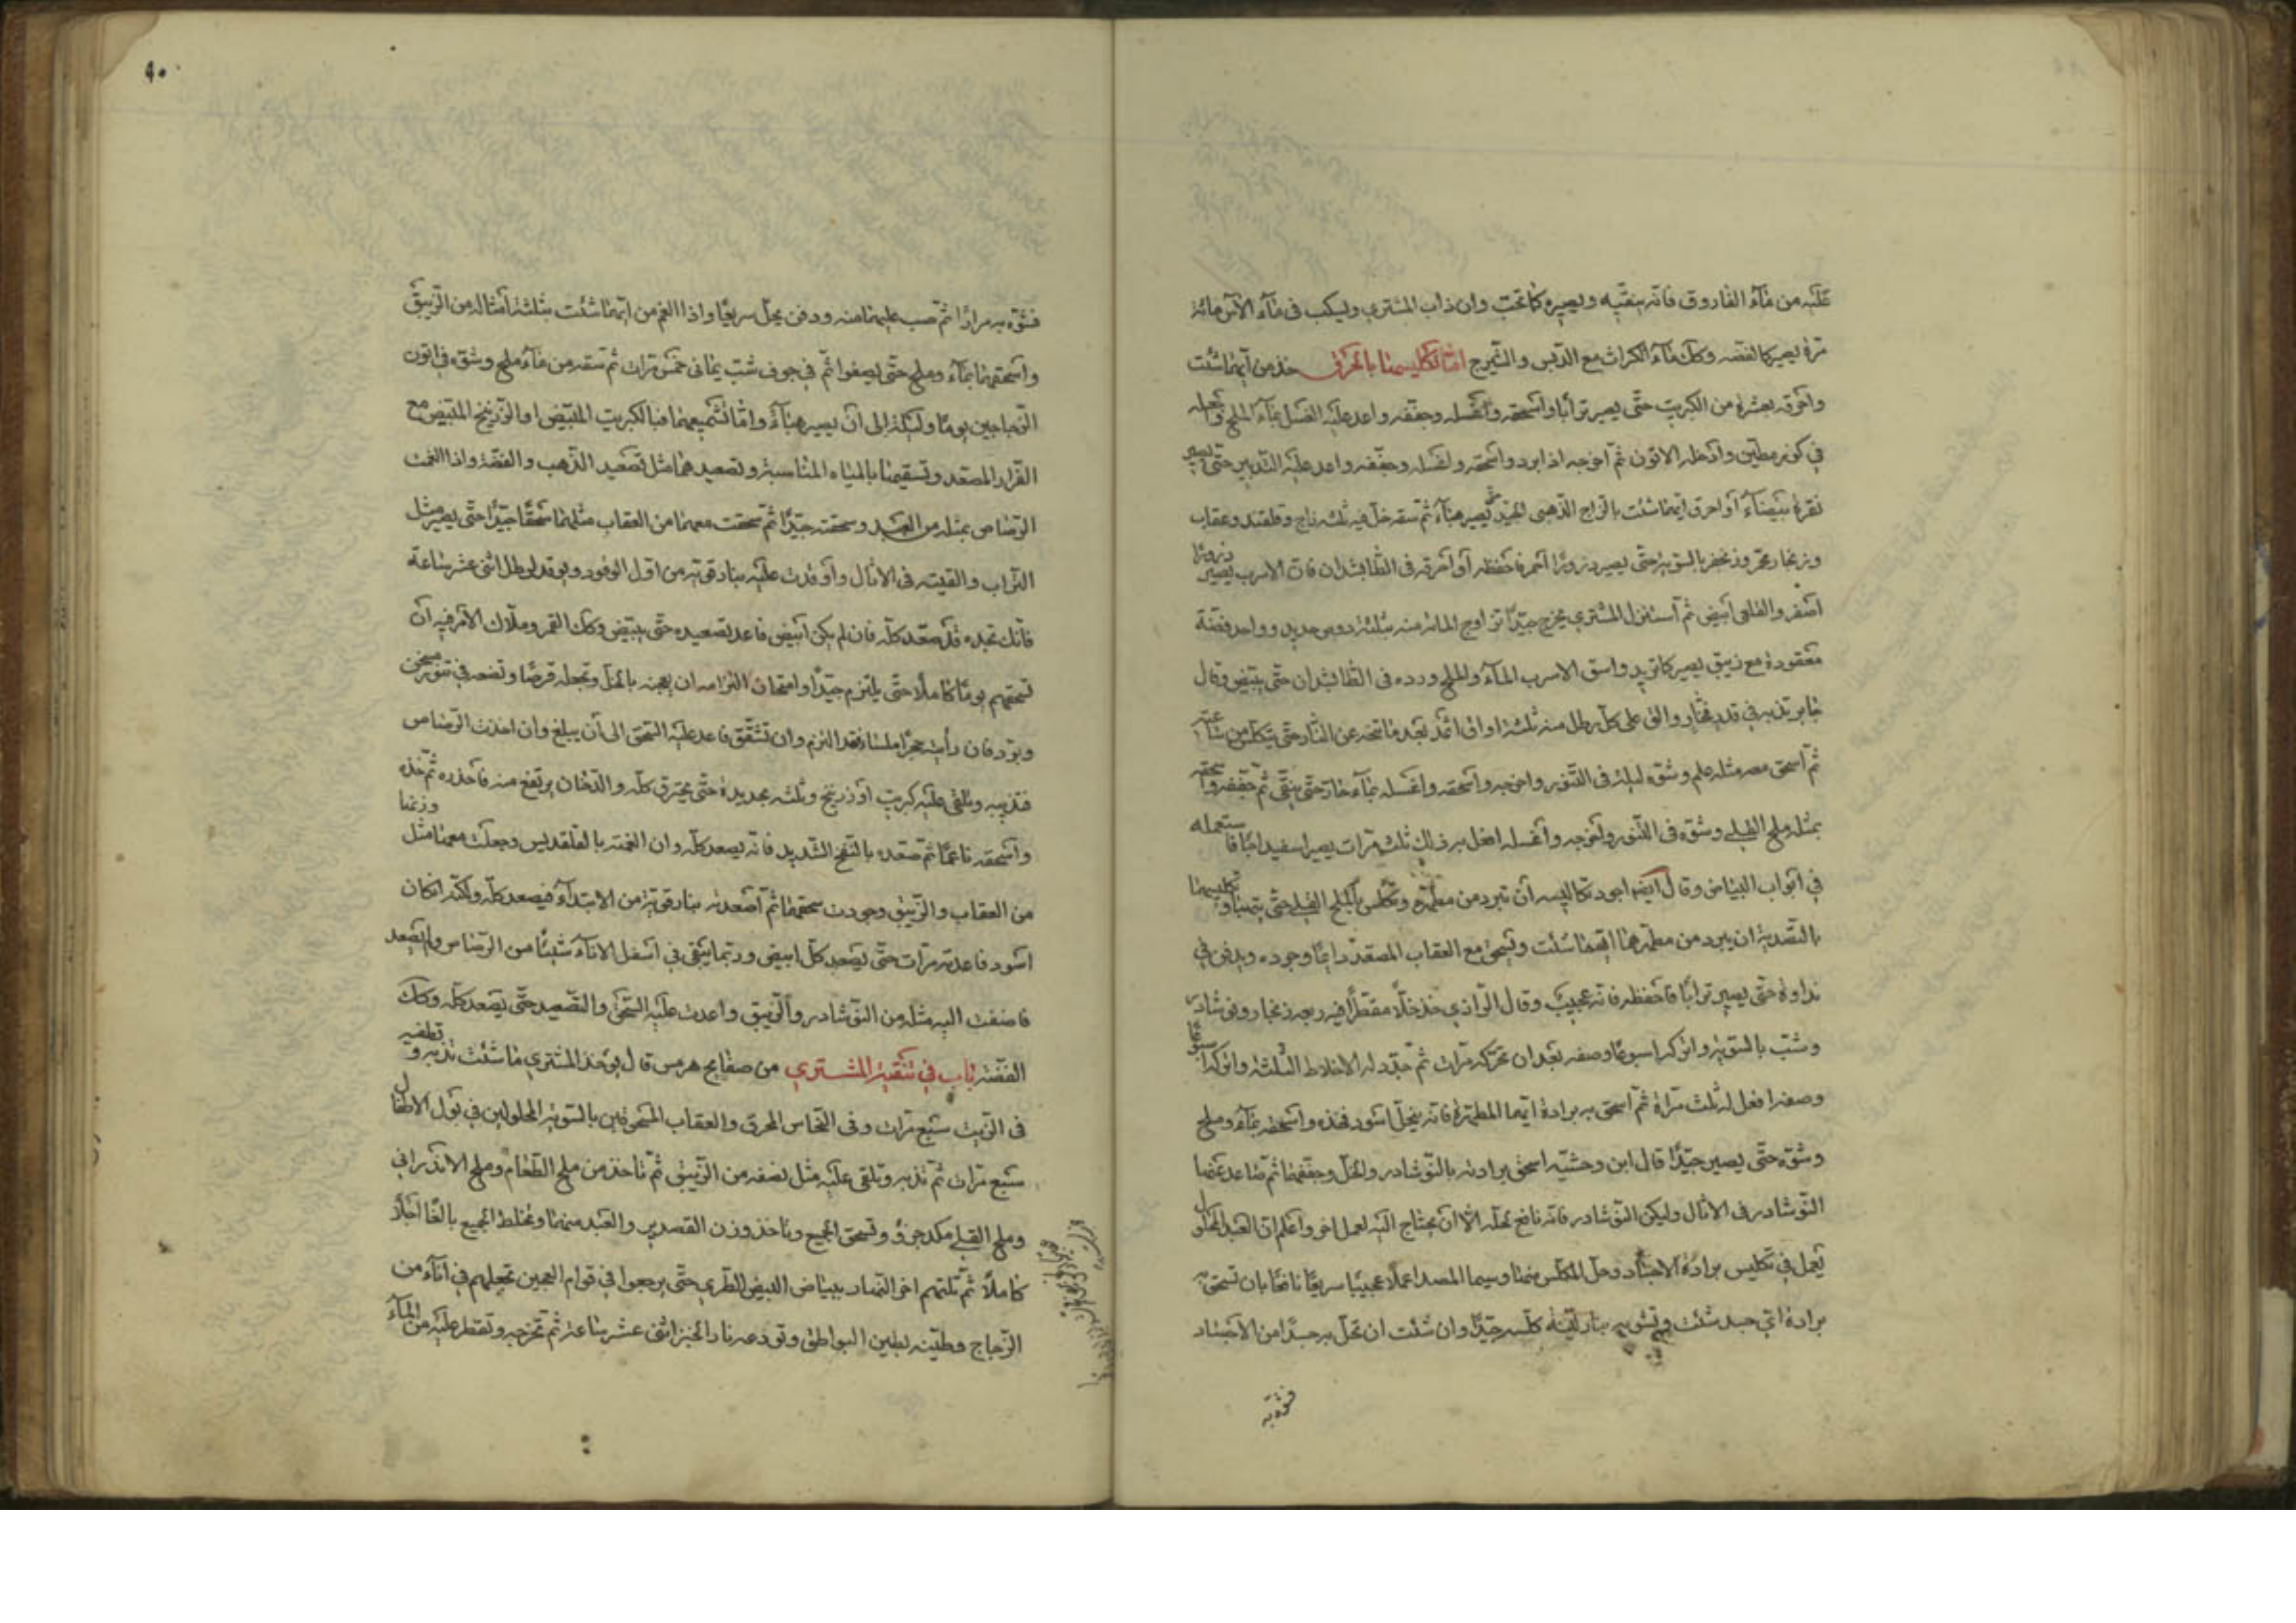 عليه من ماء الفاروق فانه ينقيه ويصيره كما تحب وان ذاب المشتري ويسكب في ماء الآس مائة
مرة يصير كالفضه وكك ماء الكراث مع الدبس والشيرج اما تكليسهما بالحرق خذ من ايهما شئت
واحرقه بعشره من الكبريت حتى يصير ترابا واسحقه واغسله وجففه واعد عليه الغسل بماء الملح واجعله
في كوز مطين وادخله الاتون ثم اخرجه اذا برد واسحقه واغسله وجففه واعد عليه التدبير حتى يصير
نقرة بيضاء او احرق ايهما شئت بالزاج الذهبى الجيد حتى يصير هباء ثم سقه خل فيه ثلثه زاج وقلقند وعقاب
وزنجار محمر وزنجفر بالسويه حتى يصير ذرورا احمر فاحفظه او احرقه في الطابشدان فان الاسرب يصير ذرورا
اصفر والقلعى ابيض ثم استنزل المشتري يخرج جيدا تزاوج المائه منه بثلثة روس حديد وواحد فضة
معقودة مع زيبق يصير كما تريد واسق الاسرب الماء والملح ورده في الطابشدان حتى يبيض وقال
جابر تذيبه في قدر فخار والق على كل رطل منه ثلثه اواق اثمد بعد ما تنحه عن النار حتى يتكلس من ساعته
ثم اسحق معه مثله ملح وشوه ليلة في التنور واخرجه واسحقه واغسله بماء حار حتى ينقى ثم جففه واسحقه
بمثله ملح القلي وشوه في التنور واخرجه واغسله افعل به ذلك ثلث مرات يصير اسفيداجا فاستعمله
في ابواب البياض وقال ايضا اجود تكاليسه ان تبرد من مطهره وتكلس بالملح القلي حتى يتهبا وتكليسهما
بالتصديه ان يبرد من مطهرهما ايهما شئت ويسحق مع العقاب المصعد دايما وجوده ويدفن في
نداوة حتى يصير ترابا فاحفظه فانه عجيب وقال الرازي خذ خلا مقطرا فيه ربعه زنجار ونوشادر
وشب بالسويه واتركه اسبوعا وصفه بعد ان تحركه مرات ثم جدد له الاخلاط الثلثة واتركه اسبوعا
وصفه افعل له ثلث مراة ثم اسحق به برادة ايهما المطهرة فانه ينحل اسود فخذه واسحقه بماء وملح
وشوه حتى يصير جيدا قال ابن وحشيه اسحق برادته بالنوشادر والخل وجففهما ثم صاعد عنهما
النوشادر في الاثال وليكن النوشادر فانه نافع لحله الا ان يحتاج اليه لعمل اخر واعلم ان العبد المحلول
يعمل في تكليس برادة الاجساد وحل المكلس منها وسيما المصدا عملا عجيبا سريعا نافعا بان تسحق به
برادة اي جسد شئت وتشويه بنار لينة كلسه جيدا وان شئت ان تحل به جسدا من الاجساد
فشوه به
٩٠
فشوه به مرارا ثم صب عليهما منه ودفن يحل سريعا واذا الغم من ايهما شئت بثلثة امثاله من الزيبق
واسحقهما بماء وملح حتى يصفوا ثم في جوف شب يمانى خمس مرات ثم تسقه من ماء ملح وشوه في اتون
الزجاجين يوما وليلة الى ان يصير هباء واما تشميعهما فبالكبريت المبيض او الزرنيخ المبيض مع
الفرار المصعد وتسقيهما بالمياه المناسبة وتصعيدهما مثل تصعيد الذهب والفضة واذا الغمت
الرصاص بمثله من العبد وسحقته جيدا ثم سحقت معهما من العقاب مثلهما سحقا جيدا حتى يصير مثل
التراب والقيته في الاثال واوقدت عليه بنار قويه من اول الوقود ويوقد لرطل اثنى عشر ساعة
فانك تجده قد صعد كله فان لم يكن ابيض فاعد تصعيده حتى يبيض وكك القمر وملاك الامر فيه ان
تسحقهم يوما كاملا حتى يلتزم جيدا وامتحان التزامه ان يعجنه بالخل وتجعله قرصا وتضعه في تنور مسخن
ويرد فان رأيته حجرا املسا فقد التزم وان تشقق فاعد عليه السحق الى ان يبلغ وان اخذت الرصاص
فتذيبه وتلقى عليه كبريت او زرنيخ وتلته بحديدة حتى يحترق كله والدخان يرتفع منه فاحذره ثم خذه
واسحقه ناعما ثم صعده بالنفخ الشديد فانه يصعد كله وان الغمته بالقلقديس وجعلت معهما مثل وزنهما
من العقاب والزيبق وجودت سحقهما ثم اصعدته بنار قويه من الابتداء فيصعد كله ولكنه ان كان
اسود فاعدته مرات حتى يصعد كل ابيض وربما يبقى في اسفل الاناء شيئا من الرصاص ولم يصعد
فاضفت اليه مثله من النوشادر والزيبق واعدت عليه السحق والتصعيد حتى يصعد كله وكك
الفضة باب في تنقية المشتري من صفايح هرمس قال يوخذ المشتري ما شئت تذيبه وتطفيه
في الزيت سبع مرات وفى النحاس المحرق والعقاب المسحوقين بالسويه المحلولين في بول الاطفال
سبع مرات ثم تذيبه وتلقى عليه مثل نصفه من الزيبق ثم تاخذ من ملح الطعام وملح الاندراني
وملح القلي مكد جزؤ وتسحق الجميع وتاخذ وزن القصدير والعبد منهما وتخلط الجميع بالغا
كاملا ثم تلتهم اخر النهار ببياض البيض الطرى حتى يرجعوا في قوام العجين تجعلهم في اناء من
الزجاج وطينه بطين البواطق وتودعه نار الخبز اثنى عشر ساعة ثم تخرجه وتقطر عليه من الماء